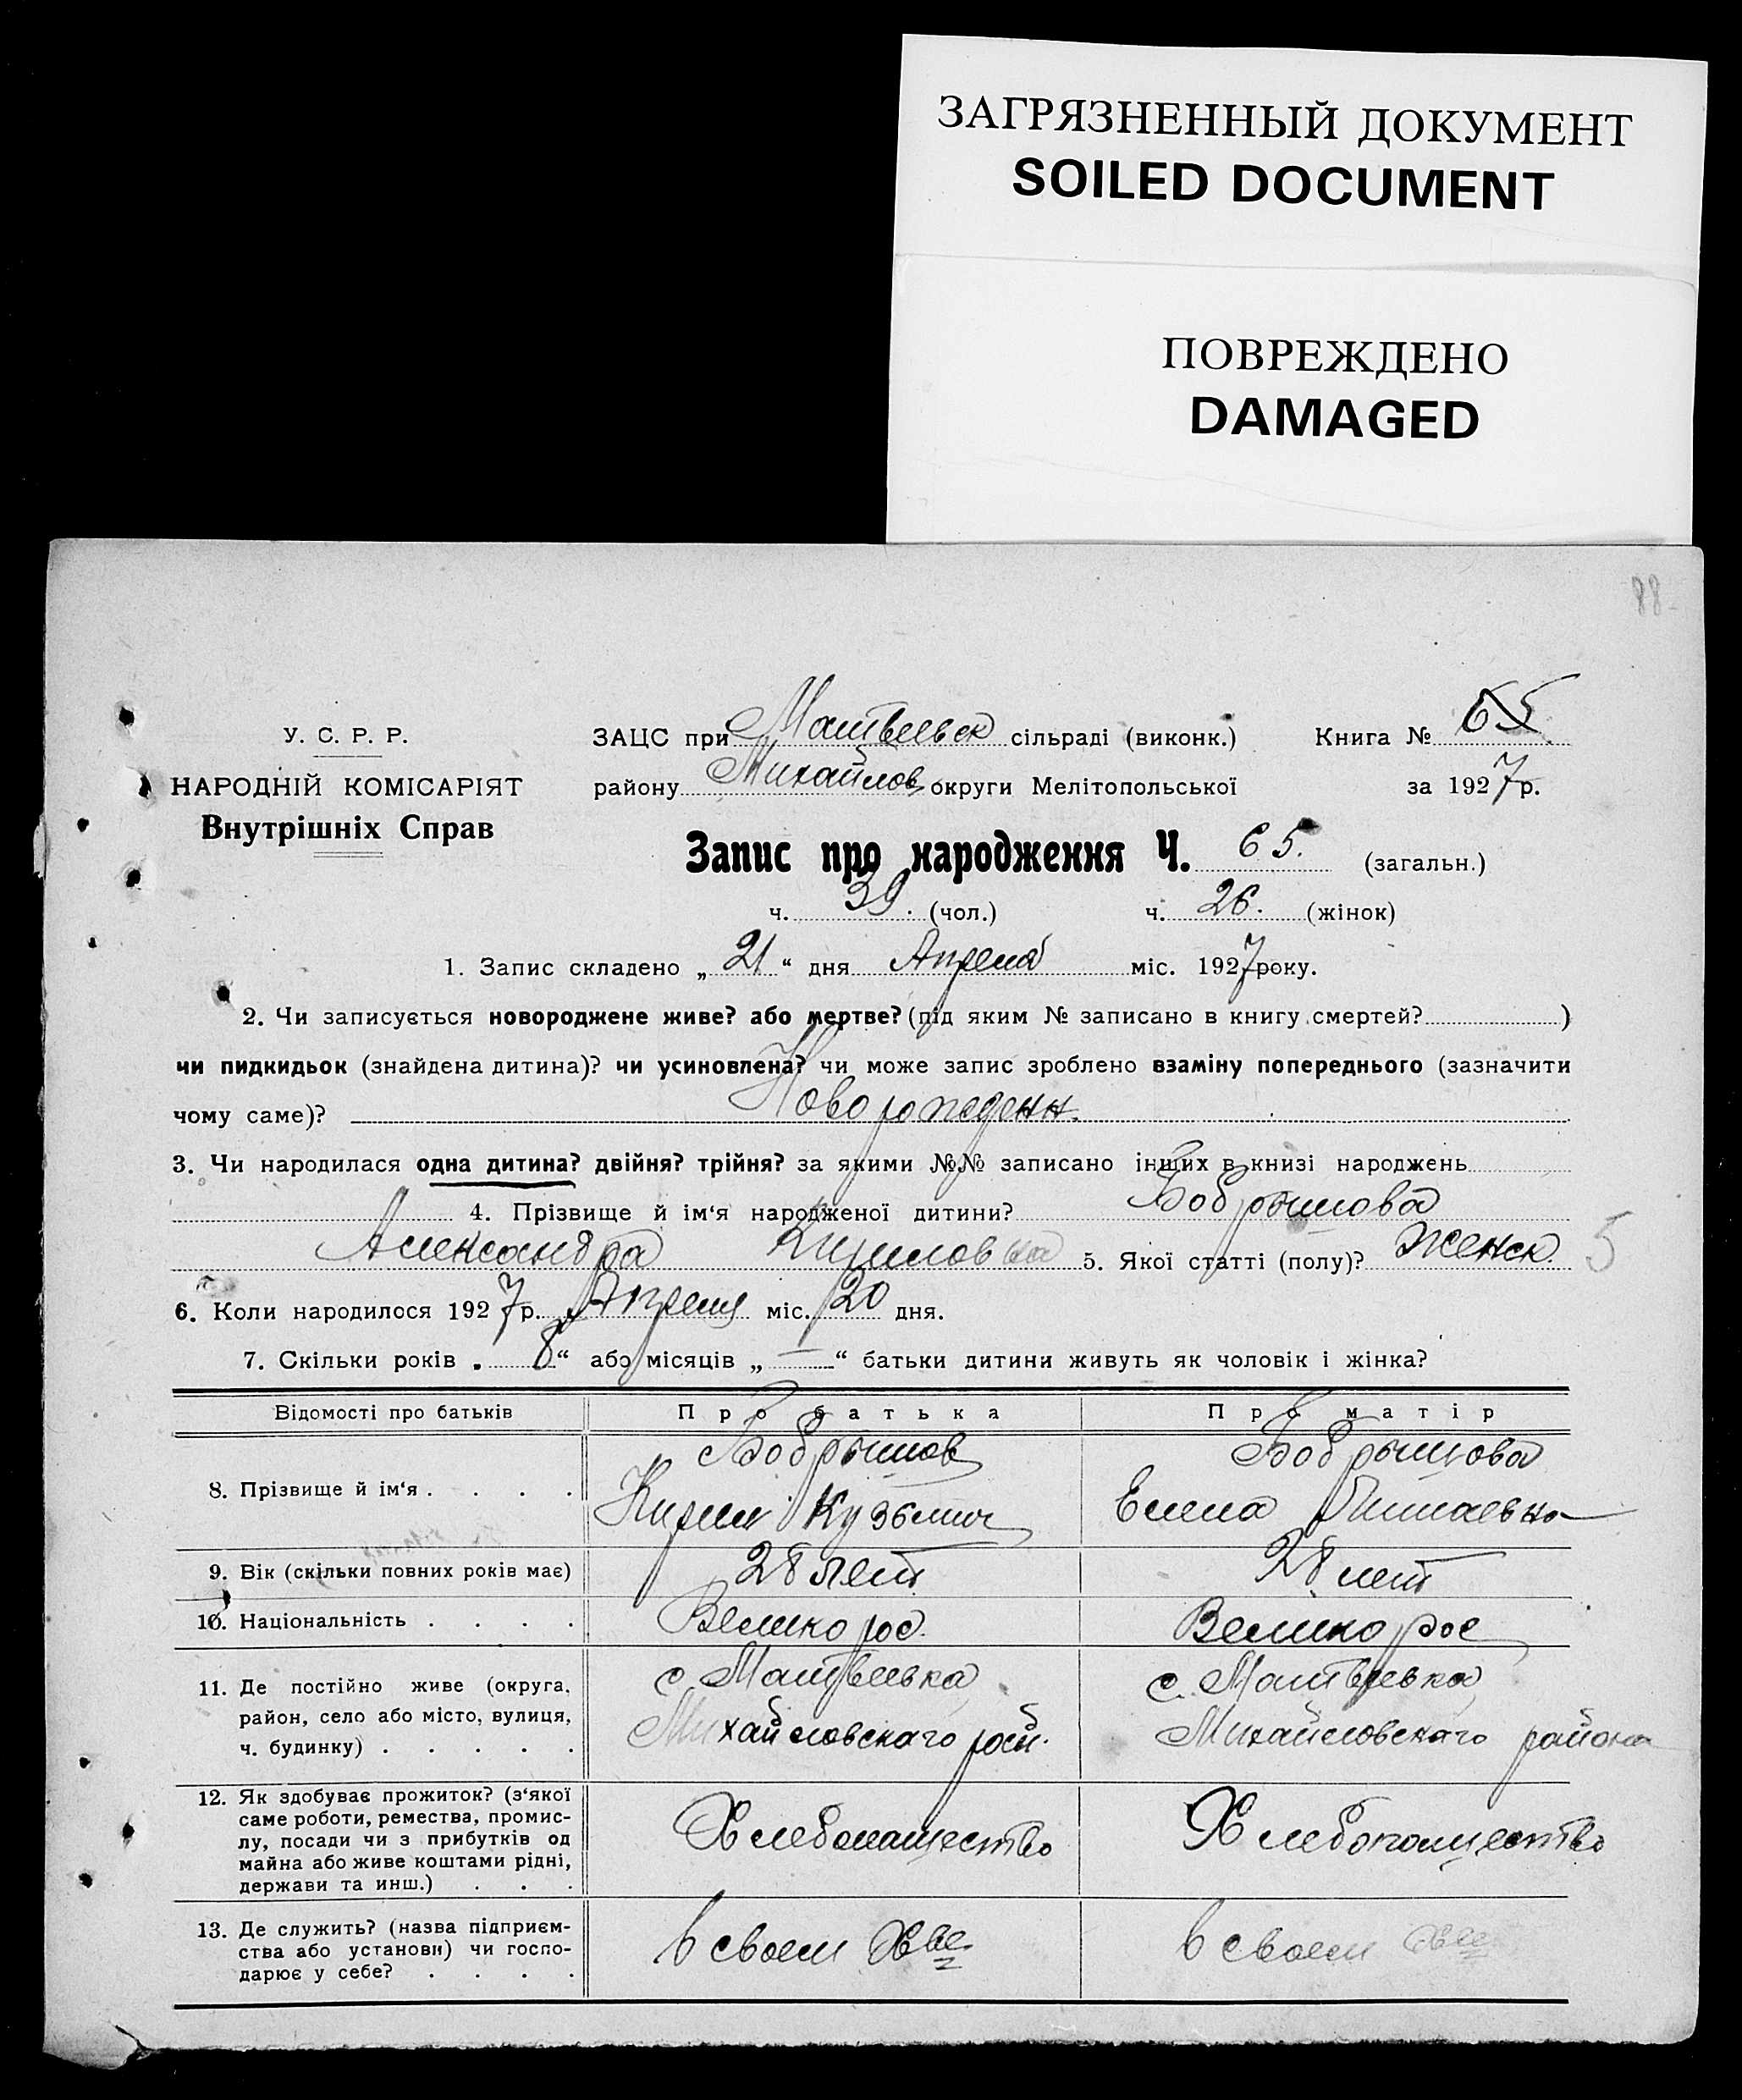 ЗАГРЯЗНЕННЫЙ ДОКУМЕНТ
SOILED DOCUMENT
ПОВРЕЖДЕНО
DAMAGED
88
У. С. Р. Р.
НАРОДНІЙ КОМІСАРІЯТ
Внутрішніх Справ
ЗАЦС при Матвеевск сільраді (виконк.) Книга № 65
району Михайлов округи Мелітопольської за 1927 р.
Запис про народження Ч. 65. (загальн.)
ч. 39. (чол.) ч. 26. (жінок)
1. Запис складено „ 21 “ дня Апреля міс. 1927 року.
2. Чи записується новороджене живе? або мертве? (під яким № записано в книгу смертей? )
чи пидкидьок (знайдена дитина)? чи усиновлена? чи може запис зроблено взаміну попереднього (зазначити
чому саме)? Новорожденн.
3. Чи народилася одна дитина? двійня? трійня? за якими №№ записано інших в книзі народжень
4. Прізвище й ім‘я народженої дитини? Бобрышова
Александра Кириловна 5. Якої статті (полу)? Женск. 5
6. Коли народилося 1927 р. Апреля міс. 20 дня.
7. Скільки років „ 8 “ або місяців „ — “ батьки дитини живуть як чоловік і жінка?
Відомості про батьків Про батька Про матір
8. Прізвище й ім‘я . . . . Бобрышов Бобрышова
Кирил Кузьмич Елена
9. Вік (скільки повних років має) 28 лет 28 лет
10. Національність . . . . Великорос. Великорос
11. Де постійно живе (округа, район, село або місто, вулиця, ч. будинку) . . . . . с. Матвеевка с. Матвеевка
Михайловскаго рай. Михайловскаго района
12. Як здобуває прожиток? (з‘якої
саме роботи, ремества, промис-
лу, посади чи з прибутків од
майна або живе коштами рідні,
держави та инш.) . . . Хлебопашество Хлебопашество
13. Де служить? (назва підприєм-
ства або установи) чи госпо-
дарює у себе? . . . . в своем Хве в своем Хве